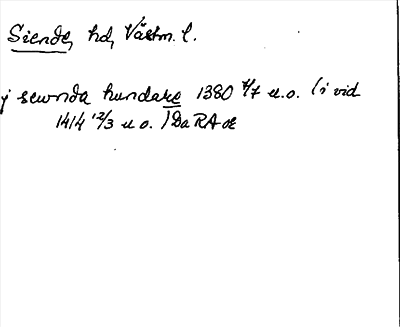 Siende, hd, Västm. l.
j sewnda hundare 1380 4/7 u.o. (i vid
1414 12/3 u o. ) Da RA